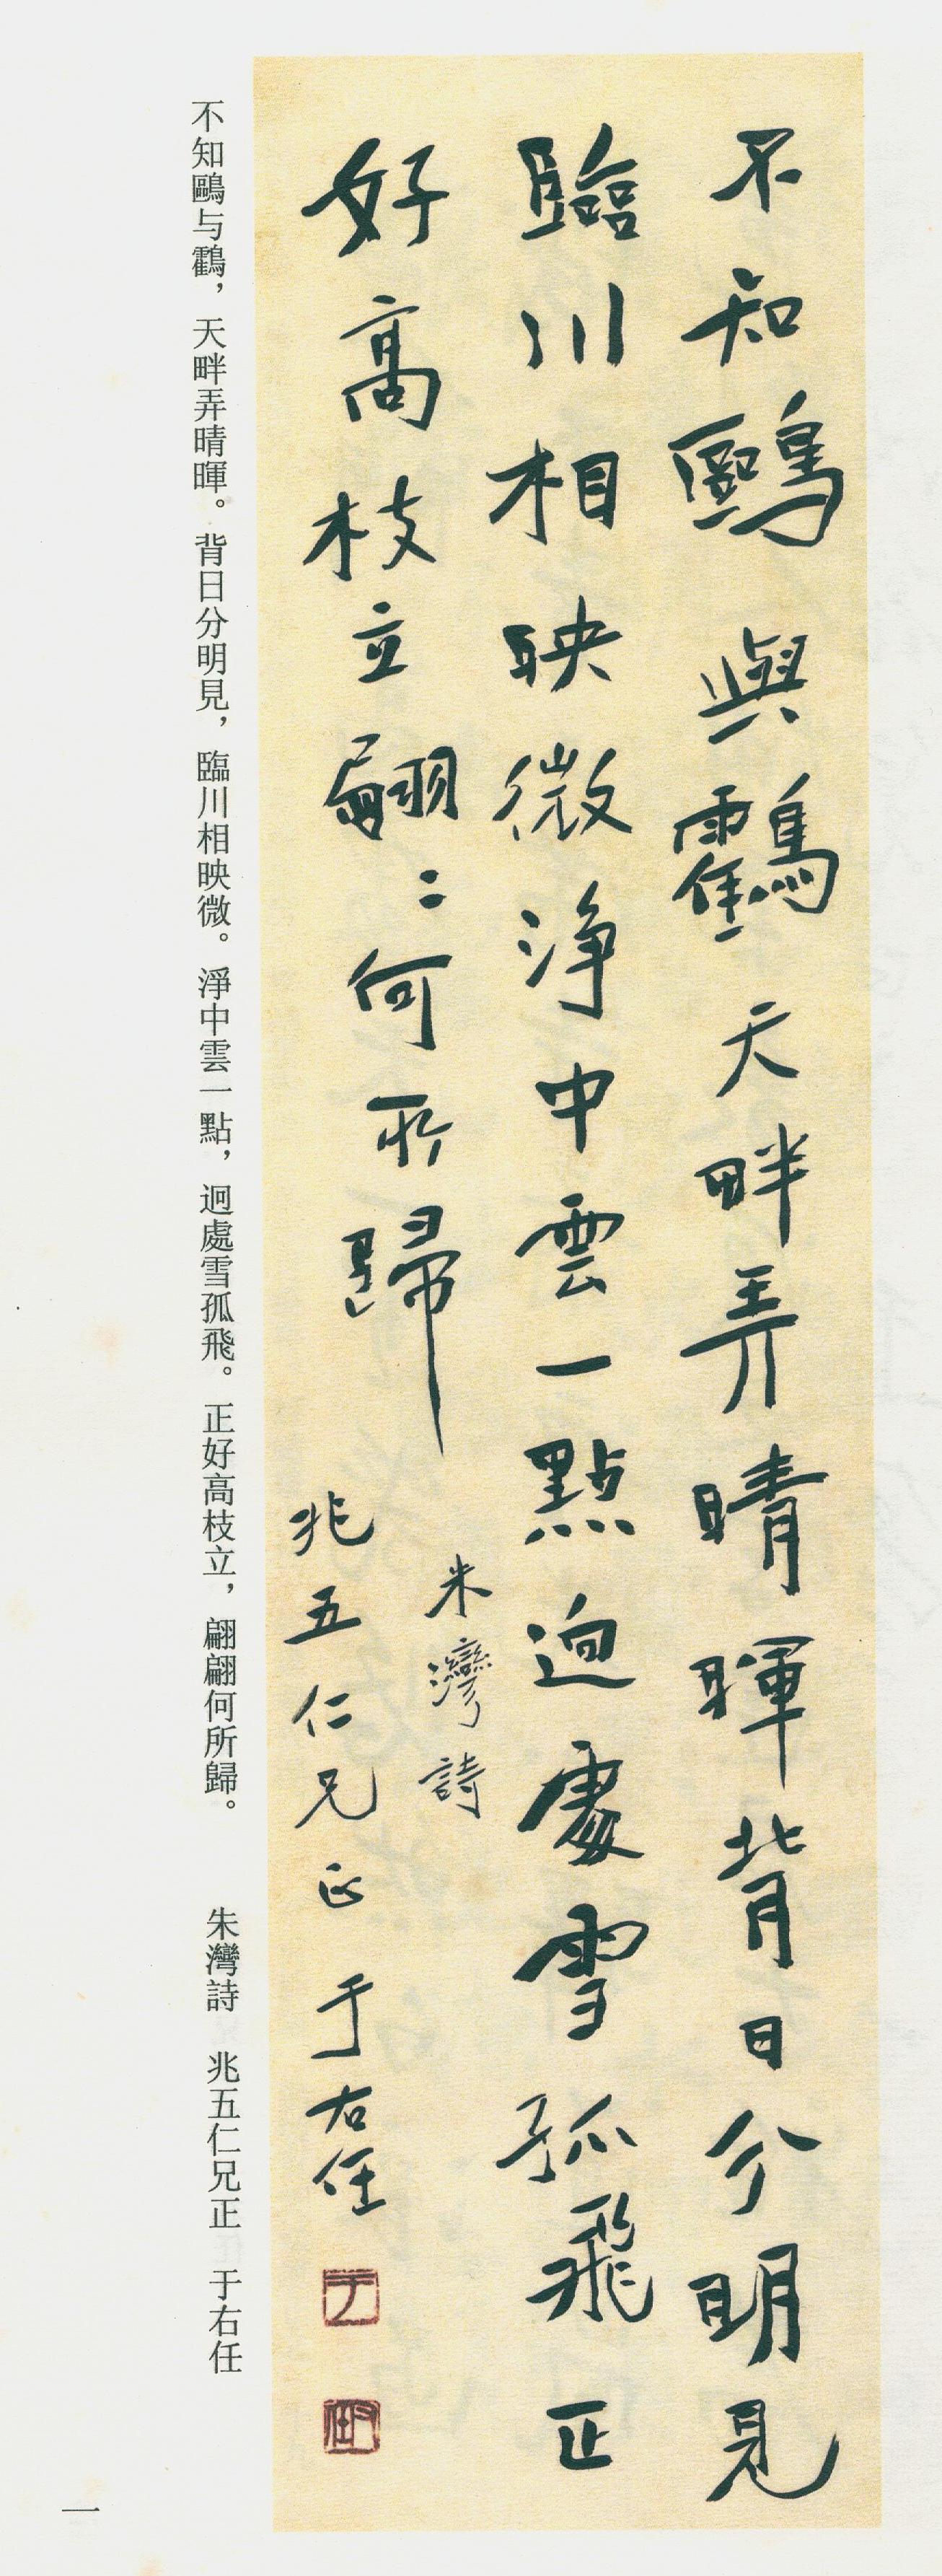 不知鷗與鸖天畔弄晴暉背日分明見
臨川相映微淨中雲一點迥處雪孤飛正
好高枝立翩〻何所歸
朱灣詩
兆五仁兄正 于右任
于
右任
不知鷗与鸖，天畔弄晴暉。背日分明見，臨川相映微。淨中雲一點，迥處雪孤飛。正好高枝立，翩翩何所歸。 朱灣詩 兆五仁兄正 于右任
一